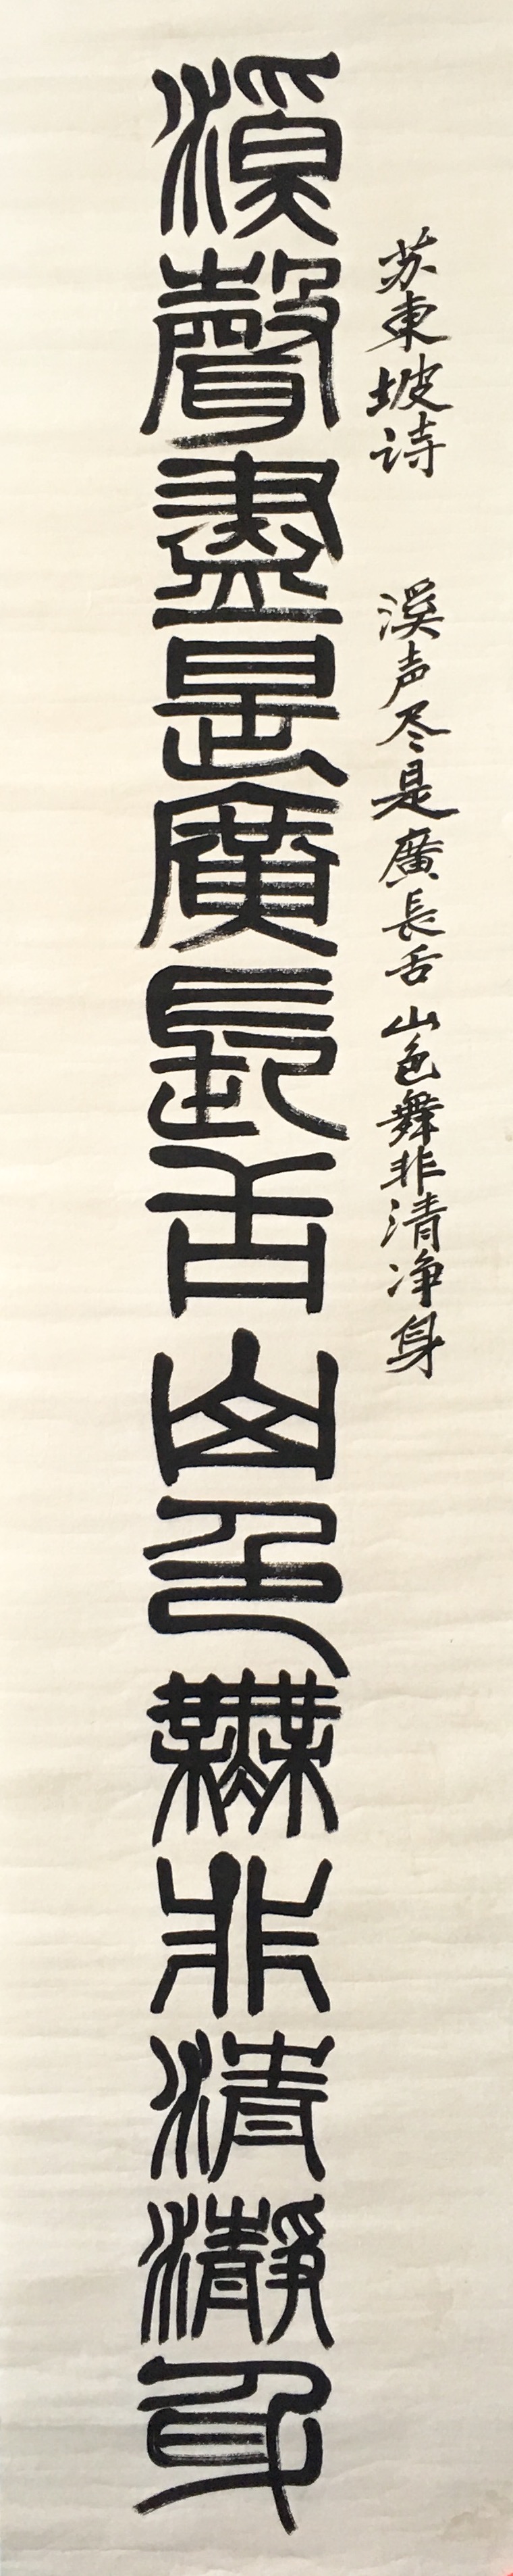 苏東坡诗 溪声尽是廣長舌 山色舞非清净身
溪聲盡是廣長舌山色無非清瀞身